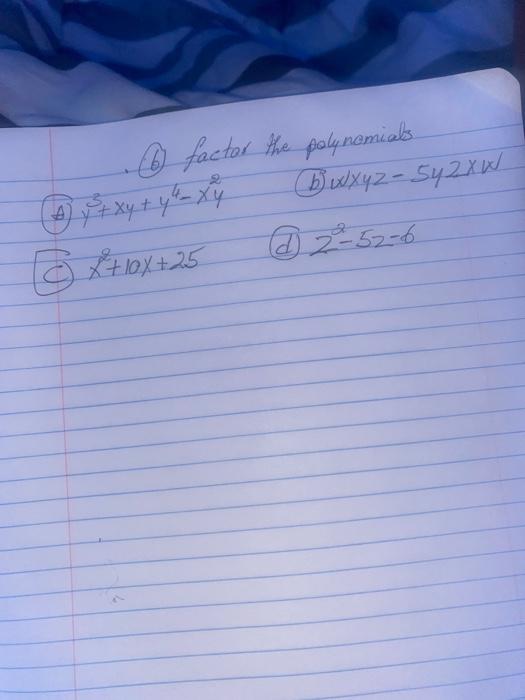 ⑥ factor the polynomials
Ⓐ y³+xy+y⁴-x²y ⓑ wxyz-5yzxw
ⓒ x²+10x+25 ⓓ z²-5z-6